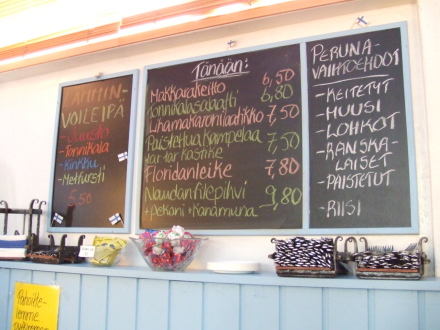 LÄMMIN-
VOILEIPÄ
-Juusto
-Tonnikala
-Kinkku
-Metvursti
5,50
Tänään:
Makkarakeitto 6,50
Tonnikalasalaatti 6,80
Lihamakaronilaatikko 7,50
Paistettua kampelaa 7,50
tar-tar kastike
Floridanleike 7,80
Naudanfilepihvi 9,80
+Pekoni + Kananmuna
PERUNA-
VAIHTOEHDOT
-KEITETYT
-MUUSI
-LOHKOT
-RANSKA-
LAISET
-PAISTETUT
-RIISI